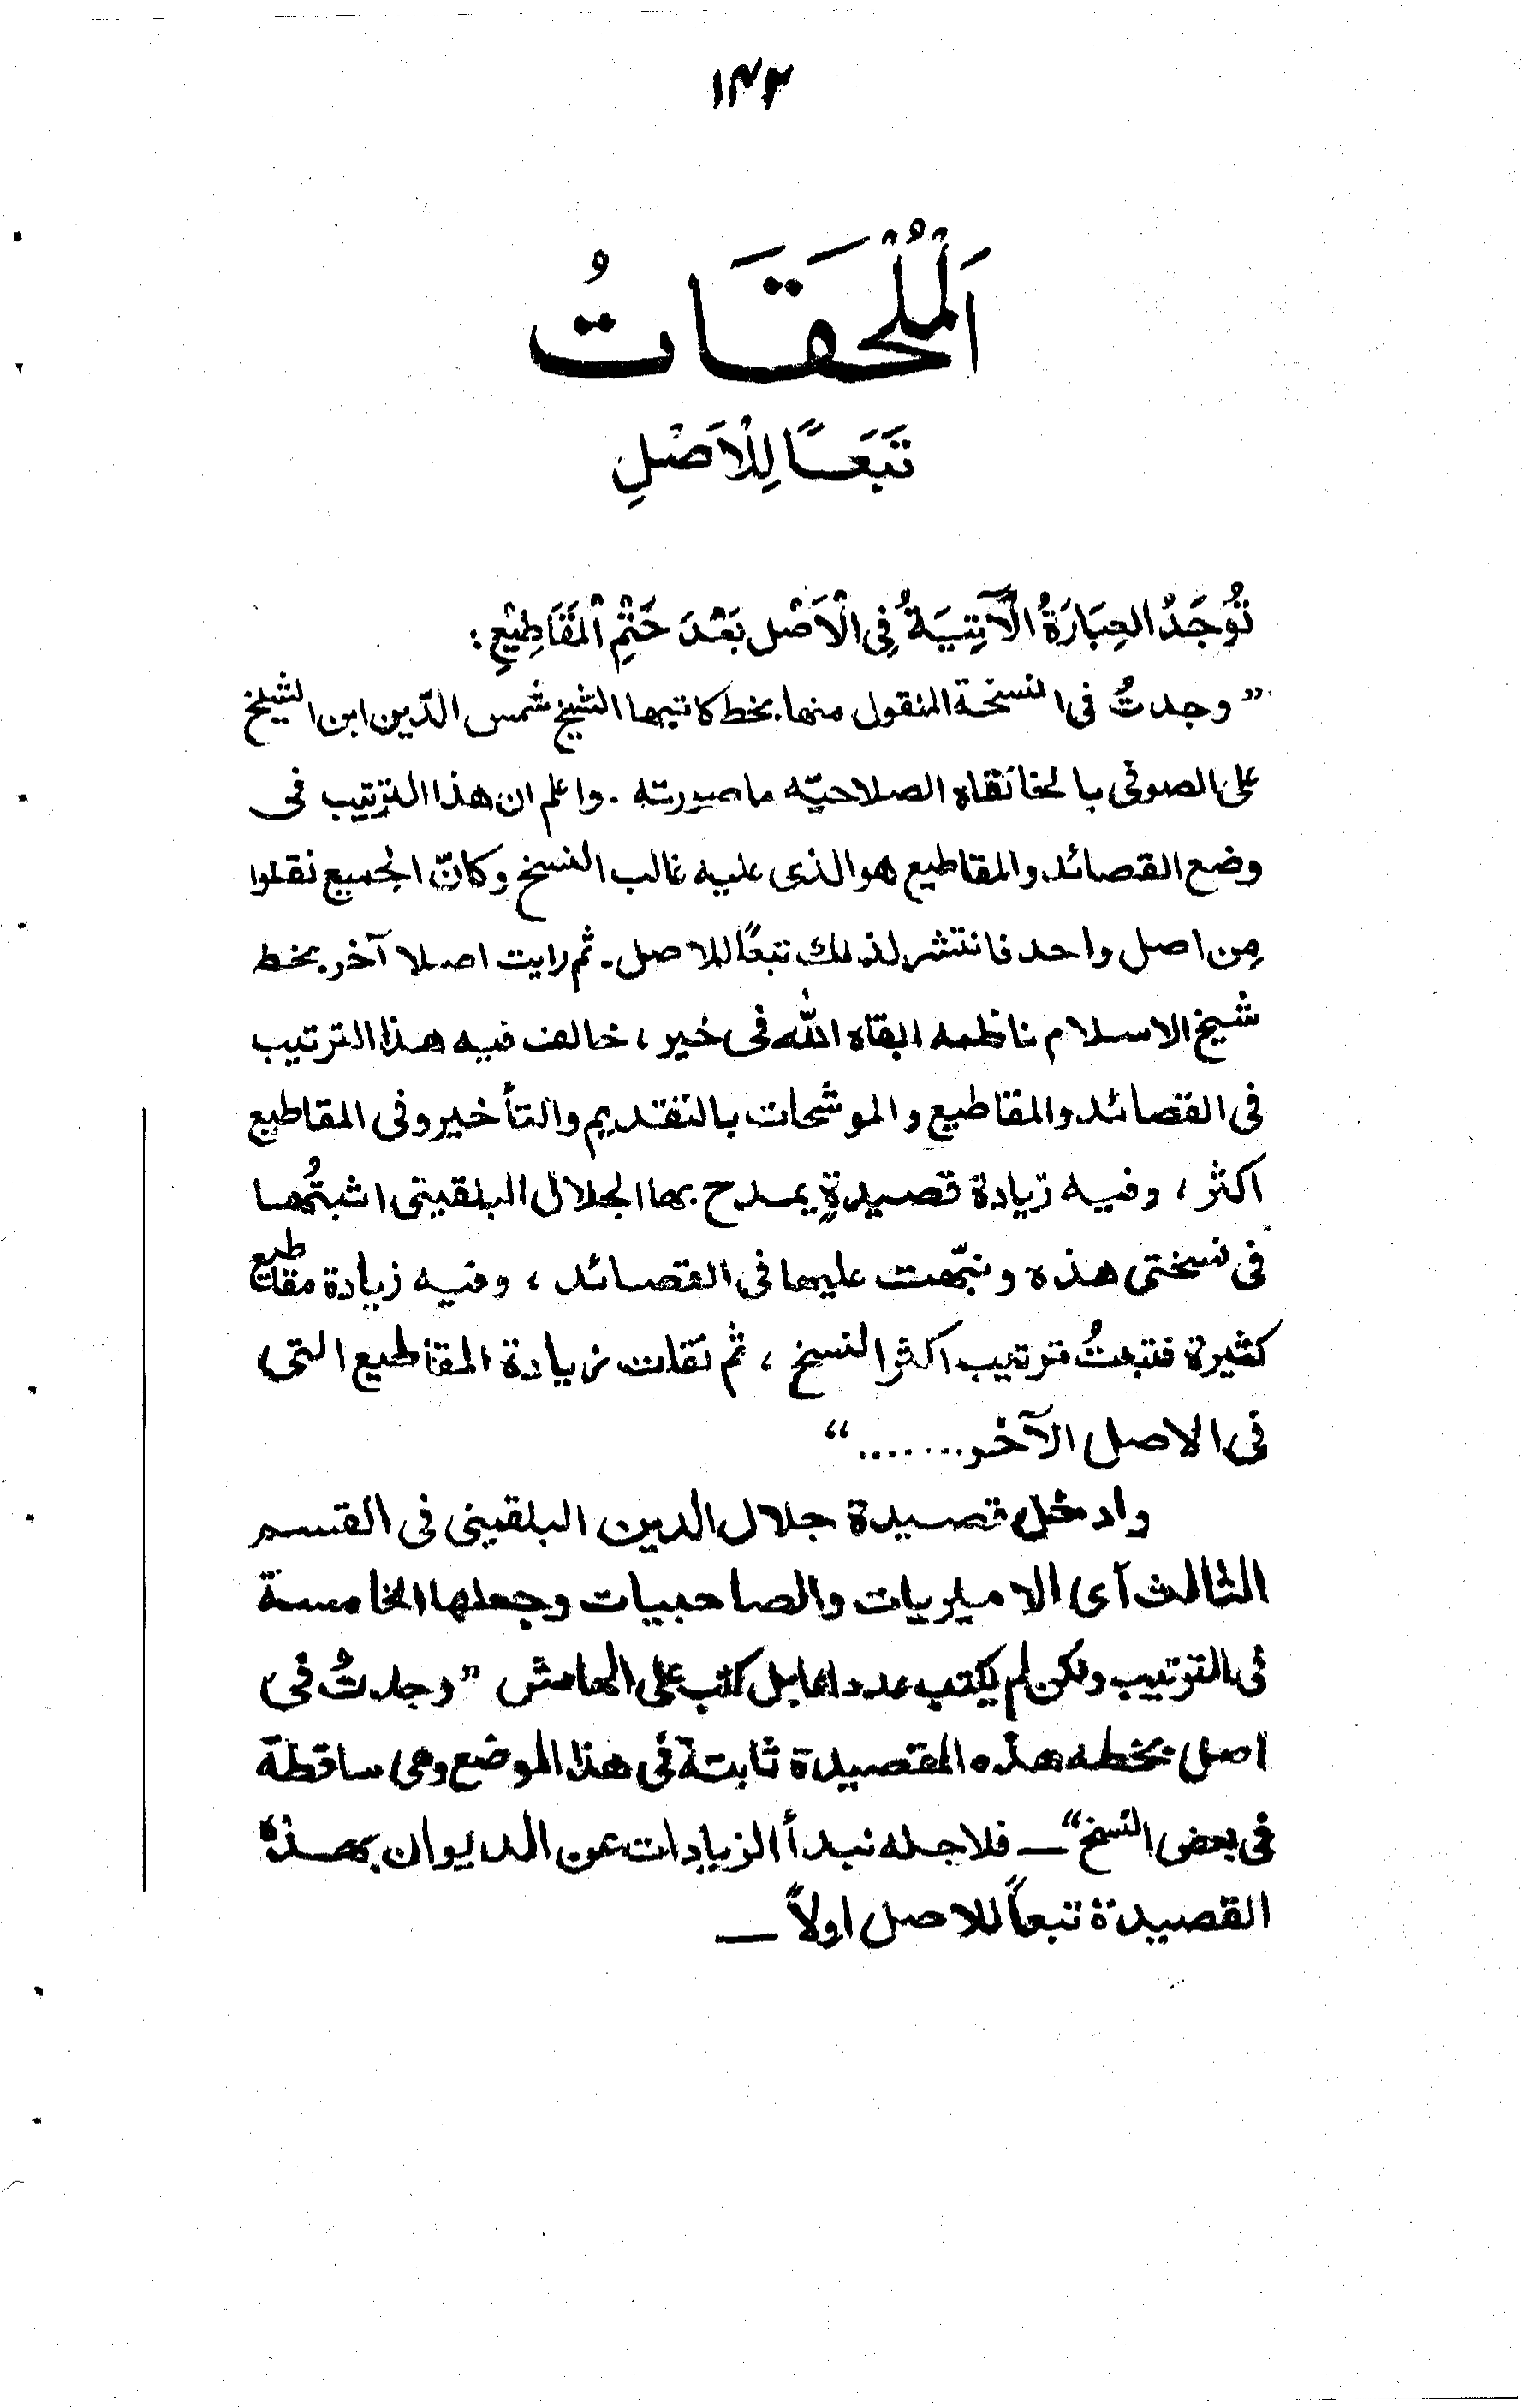 ١٤٢
اَلْمُلْحَقَاتُ
تَبَعًا لِلْاَصْلِ
تُوُجَدُ العِبَارَةُ الْآتِيَةُ فِي الْاَصْلِ بَعْدَ خَتْمِ الْمَقَاطِيْعِ :
”وجدتُ فى النسخة المنقول منها بخط كاتبها الشيخ شمس الدّين ابن الشيخ
على الصوفى بالخانقاه الصلاحيّه ما صورته . واعلم ان هذا الترتيب فى
وضع القصائد والمقاطيع هو الذى عليه غالب النسخ وكانّ الجميع نقلوا
مِن اصل واحد فانتشر لذلك تبعًا للاصل ـ ثم رايت اصلا آخر بخط
شيخ الاسلام ناظمه ابقاه الله فى خير ، خالف فيه هذا الترتيب
فى القصائد والمقاطيع والموشحات بالتقديم والتأخير وفى المقاطيع
اكثر ، وفيه زيادة قصيدةٍ يمدح بها الجلال البلقينى اثبتُها
فى نسختى هذه ونبّهت عليها فى القصائد ، وفيه زيادة مقاطيع
كثيرة فتبعتُ ترتيب اكثر النسخ ، ثم نقلت زيادة المقاطيع التى
فى الاصل الآخر ........“
وادخل قصيدة جلال الدين البلقينى فى القسم
الثالث آى الاميريات والصاحبيات وجعلها الخامسة
فى الترتيب ولكن لم يكتب عددها بل كتب على الهامش ”وجدتُ فى
اصل بخطه هذه القصيدة ثابتة فى هذا الموضع وهى ساقطة
فى بعض النسخ“ ـ فلاجله نبدأ الزيادات عن الديوان بهذه
القصيدة تبعاً للاصل اولاً ـ